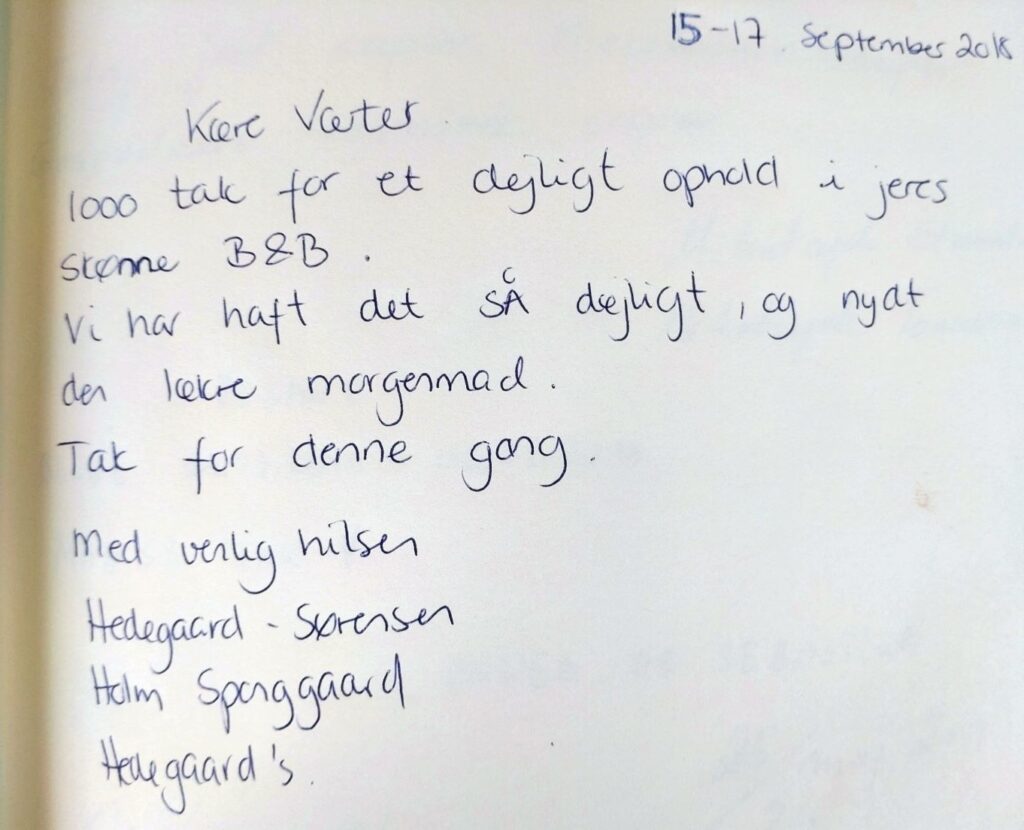 15-17. September 2018
Kære Værter.
1000 tak for et dejligt ophold i jeres
skønne B&B.
Vi har haft det SÅ dejligt, og nydt
den lækre morgenmad.
Tak for denne gang.
Med venlig hilsen
Hedegaard - Sørensen
Holm Spanggaard
Hedegaard's.